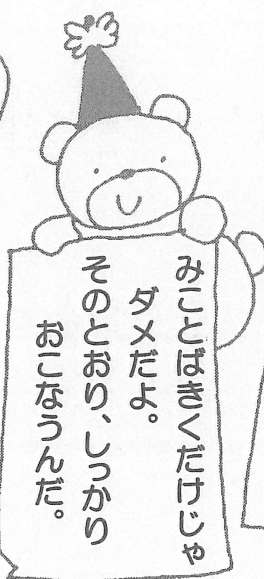 みことばきくだけじゃ
ダメだよ。
そのとおり、しっかり
おこなうんだ。